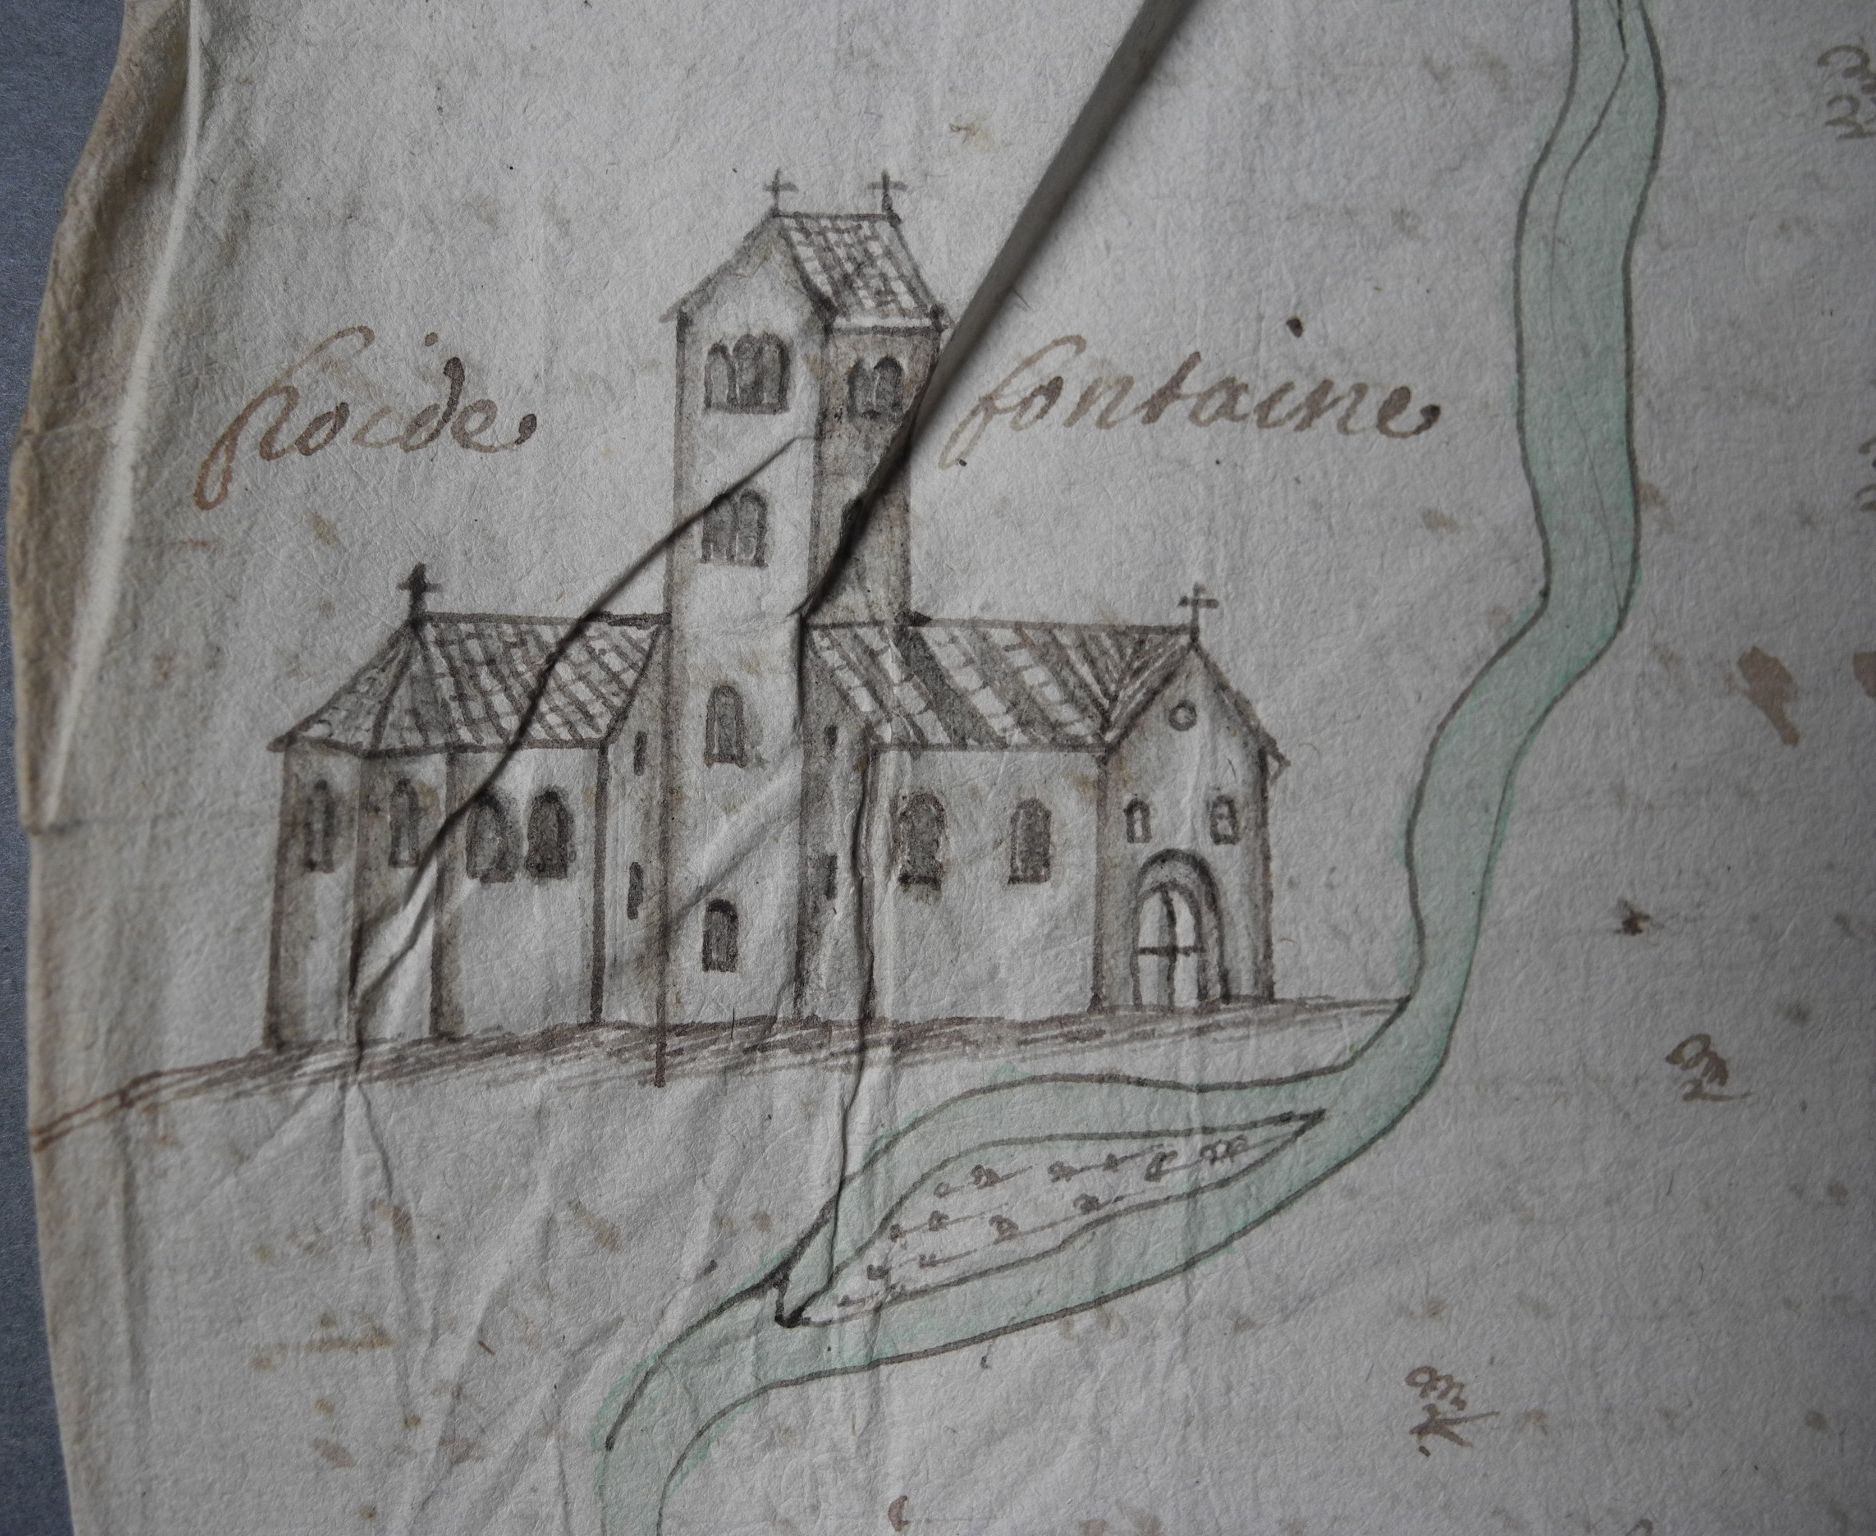 froide fontaine